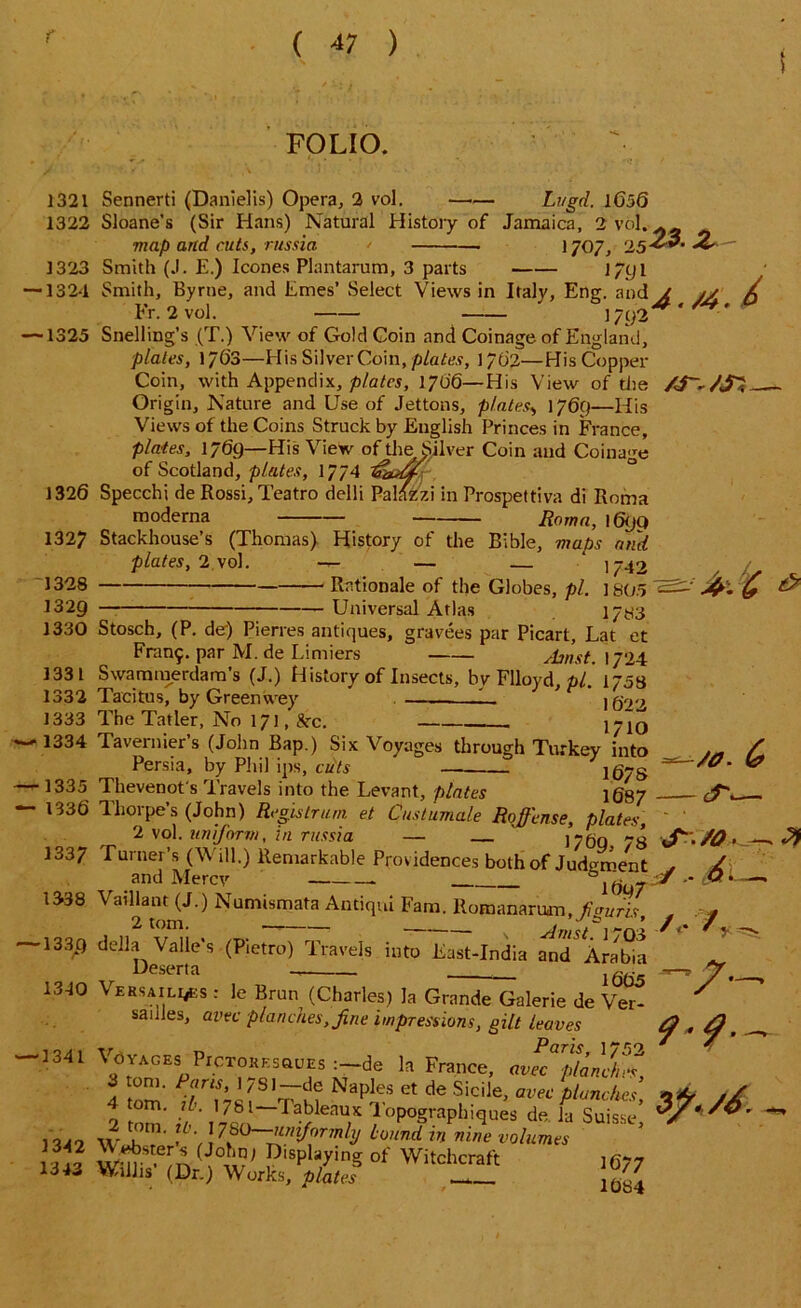 ( 47 )
FOLIO.
1321 Sennerti (Danielis) Opera, 2 vol. —— Lugd. 1656
1322 Sloane's (Sir Hans) Natural History of Jamaica, 2 vol.
map and cuts, russia —— 1707, 25 23. 2
1323 Smith (J. E.) Icones Plantarum, 3 parts —— 1791
—1324 Smith, Byrne, and Emes' Select Views in Italy, Eng. and
Fr. 2 vol. —— —— 1792 4. 14. 6
—1325 Snelling's (T.) View of Gold Coin and Coinage of England,
plates, 1763—His Silver Coin, plates, 1762—His Copper
Coin, with Appendix, plates, 1766—His View of the 15. 15. —
Origin, Nature and Use of Jettons, plates, 1769—His
Views of the Coins Struck by English Princes in France,
plates, 1769—His View of the Silver Coin and Coinage
of Scotland, plates, 1774
1326 Specchi de Rossi, Teatro delli Palazzi in Prospettiva di Roma
moderna —— —— Roma, 1699
1327 Stackhouse's (Thomas) History of the Bible, maps and
plates, 2 vol. — — — 1742
1328 —— Rationale of the Globes, pl. 1805 4. 6
1329 —— Universal Atlas 1783
1330 Stosch, (P. de) Pierres antiques, gravées par Picart, Lat et
Franç. par M. de Limiers —— Amst. 1724
1331 Swammerdam's (J.) History of Insects, by Flloyd, pl. 1758
1332 Tacitus, by Greenwey —— 1622
1333 The Tatler, No 171, &c. —— 1710
—1334 Tavernier's (John Bap.) Six Voyages through Turkey into
Persia, by Philips, cuts —— 1678 — 10. 6
—1335 Thevenot's Travels into the Levant, plates 1687 — 5. —
—1336 Thorpe's (John) Registrum et Custumale Roffense, plates,
2 vol. uniform, in russia — — 1769, 78 5. 10. —
1337 Turner's (Will.) Remarkable Providences both of Judgment
and Mercy —— —— 1697 - 6. —
1338 Vaillant (J.) Numismata Antiqui Fam. Romanarum, figuris,
2 tom. —— —— Amst. 1703
—1339 della Valle's (Pietro) Travels into East-India and Arabia
Deserta —— —— 1665 — 7. —
1340 VERSAILLES: le Brun (Charles) la Grande Galerie de Ver-
sailles, avec planches, fine impressions, gilt leaves
Paris, 1752 9. 9. —
—1341 VOYAGES PICTORESQUES:—de la France, avec planches,
3 tom. Paris, 1781—de Naples et de Sicile, avec planches,
4 tom. ib. 1781—Tableaux Topographiques de la Suisse, 37. 16. —
2 tom. ib. 1780—uniformly bound in nine volumes
1342 Webster's (John) Displaying of Witchcraft 1677
1343 Willis' (Dr.) Works, plates —— 1684